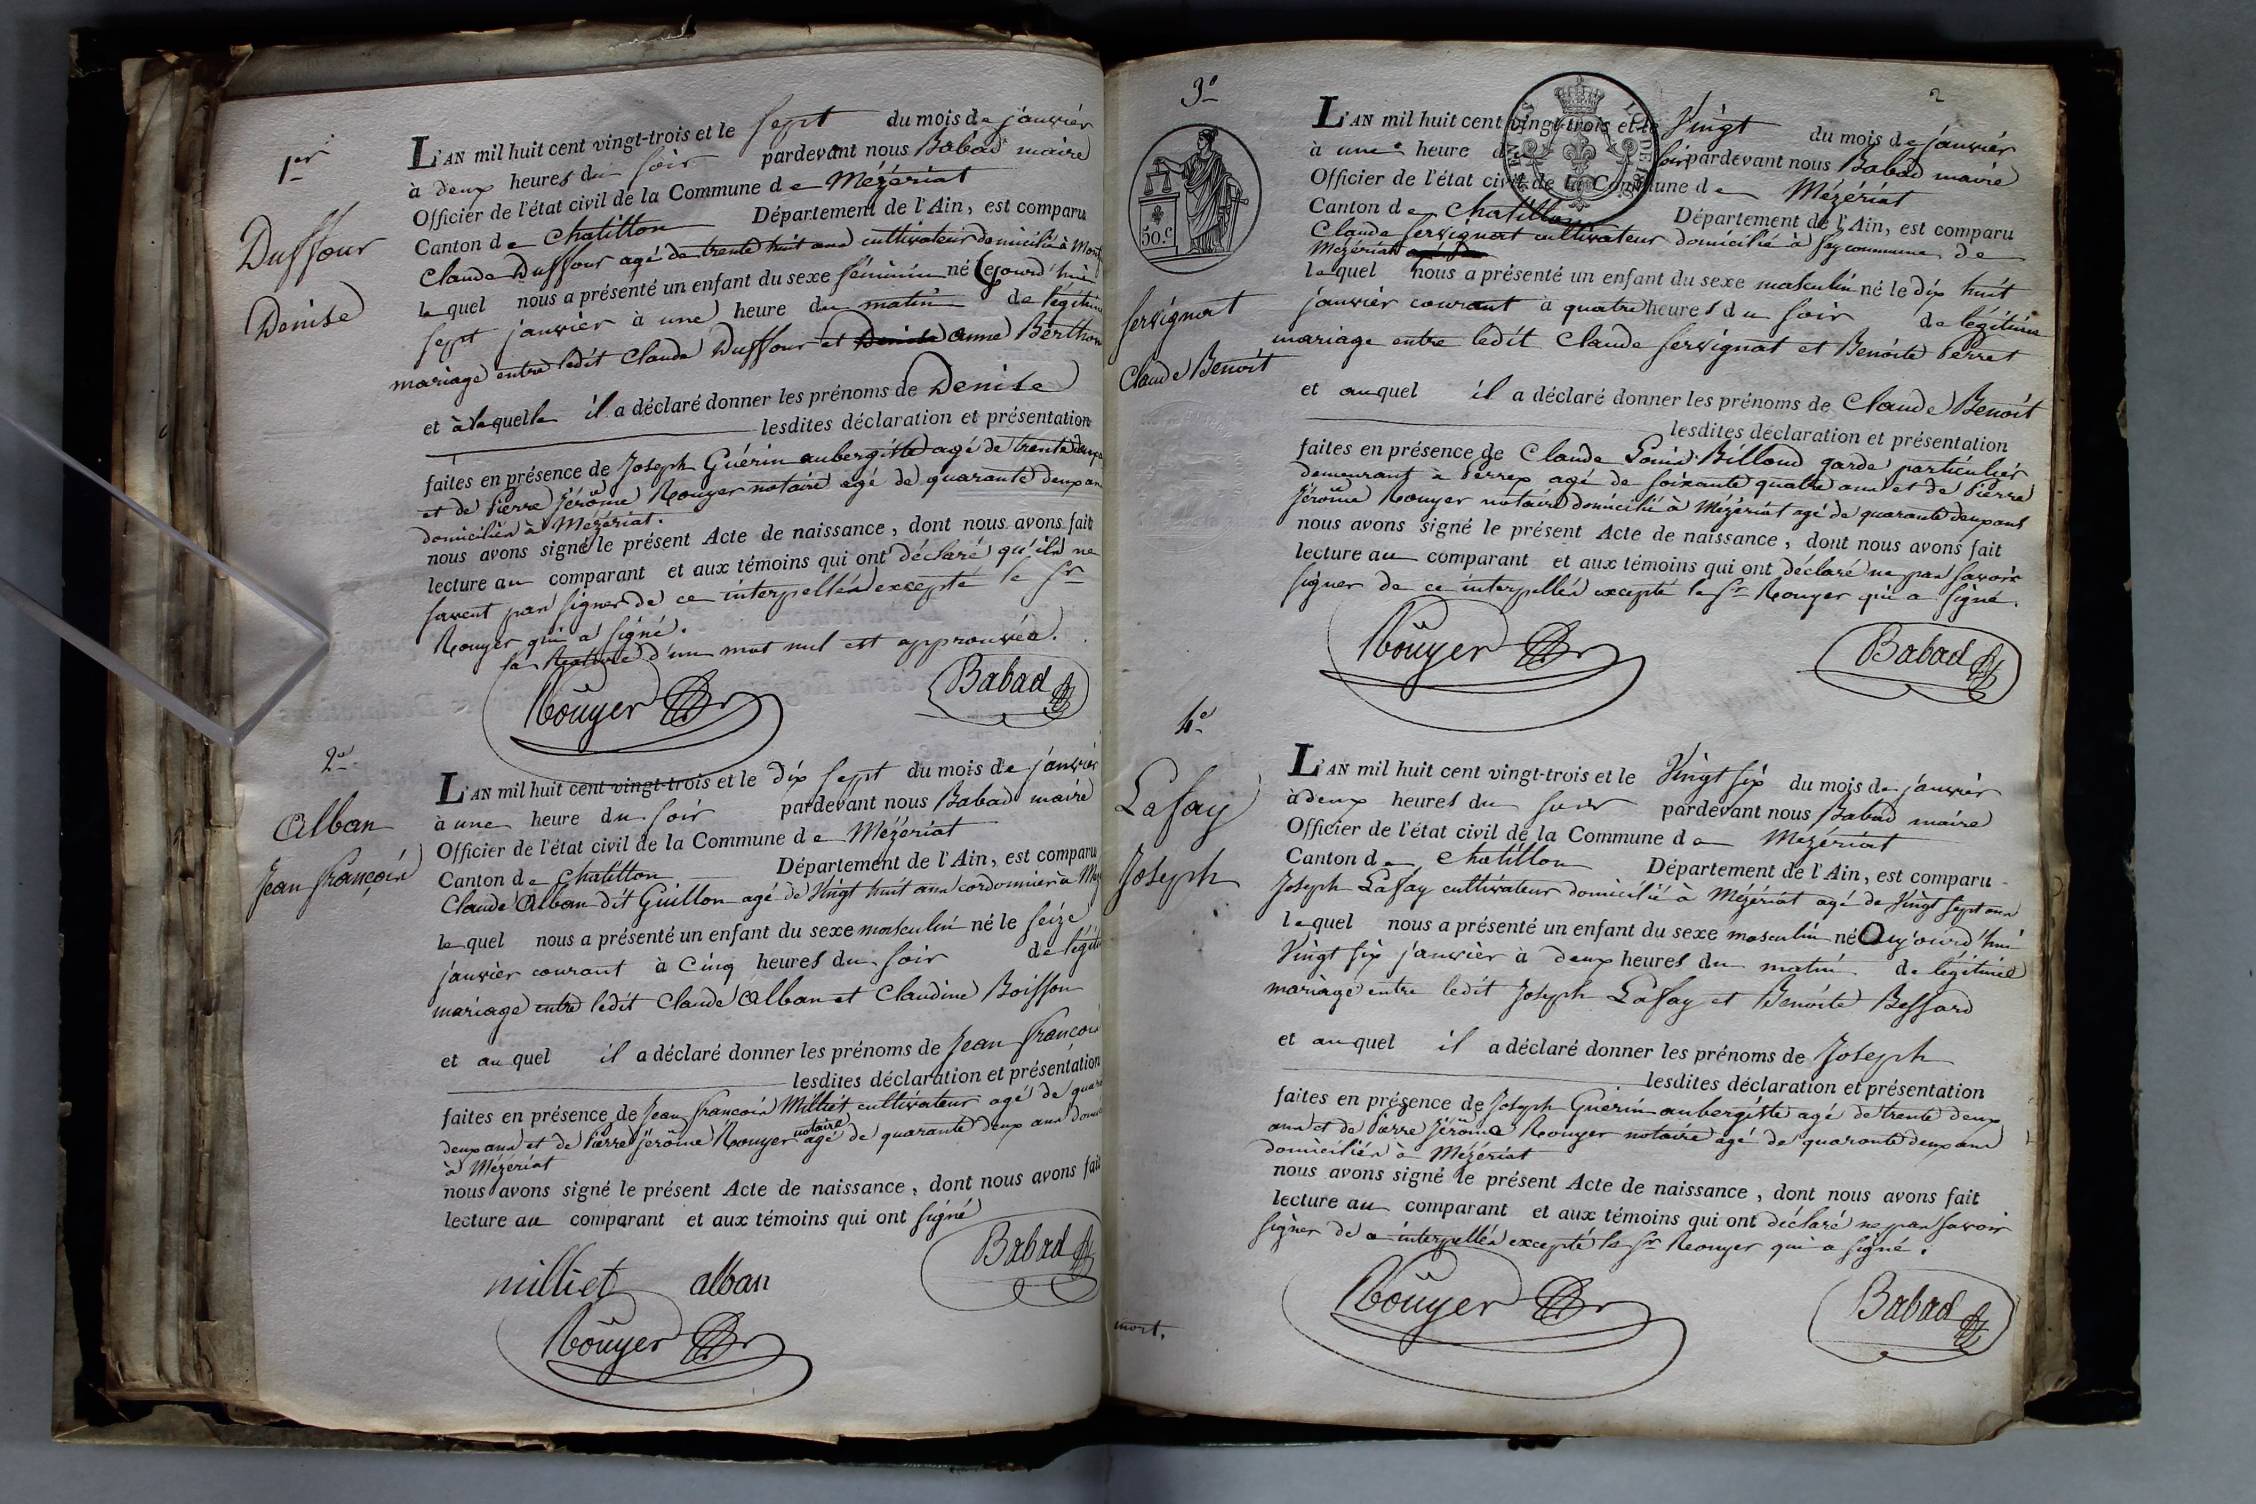 1er
Duffour
Denise
L'AN mil huit cent vingt-trois et le sept du mois de janvier
à deux heures du soir pardevant nous Babad maire
Officier de l'état civil de la Commune de Mézériat
Canton de Chatillon Département de l'Ain, est comparu
Claude Duffour agé de trente huit ans cultivateur domicilié à
lequel nous a présenté un enfant du sexe féminin né cejourd'hui
sept janvier à une heure du matin de légitime
mariage entre ledit Claude Duffour et Denise anne
et à laquelle il a déclaré donner les prénoms de Denise
lesdites déclaration et présentation
faites en présence de Joseph Guérin aubergiste agé de trente deux
et de Pierre Jérôme Rouyer notaire agé de quarante deux ans
domiciliés à Mézériat.
nous avons signé le présent Acte de naissance, dont nous avons fait
lecture au comparant et aux témoins qui ont déclaré qu'ils ne
savent pas signer de ce interpellés excepté le Sr
Rouyer qui a signé.
la Rature d'un mot nul est approuvée.
Rouyer Babad
2e
Alban
Jean françois
L'AN mil huit cent vingt-trois et le dix sept du mois de janvier
à une heure du soir pardevant nous Babad maire
Officier de l'état civil de la Commune de Mézériat
Canton de Chatillon Département de l'Ain, est comparu
Claude Alban dit Guillon agé de Vingt huit ans cordonnier à
lequel nous a présenté un enfant du sexe masculin né le seize
janvier courant à Cinq heures du soir de
mariage entre ledit Claude Alban et Claudine Boisson
et auquel il a déclaré donner les prénoms de Jean françois
lesdites déclaration et présentation
faites en présence de Jean françois Milliet cultivateur agé de
deux ans et de Pierre Jérôme Rouyer notaire agé de quarante deux ans
à Mézériat
nous avons signé le présent Acte de naissance, dont nous avons fait
lecture au comparant et aux témoins qui ont signé
Babad
milliet alban
Rouyer
2
3e
50.c
Servignat
Claude Benoit
L'AN mil huit cent vingt-trois et le Vingt du mois de janvier
à une heure du soir pardevant nous Babad maire
Officier de l'état civil de la Commune de Mézériat
Canton de Chatillon Département de l'Ain, est comparu
Claude Servignat cultivateur domicilié à fay commune de
Mézériat
lequel nous a présenté un enfant du sexe masculin né le dix huit
janvier courant à quatre heures du soir de légitime
mariage entre ledit Claude Servignat et Benoite Perret
et auquel il a déclaré donner les prénoms de Claude Benoit
lesdites déclaration et présentation
faites en présence de Claude Louis Billoud garde particulier
demeurant à Perrex agé de soixante quatre ans et de Pierre
Jérôme Rouyer notaire domicilié à Mézériat agé de quarante deux ans
nous avons signé le présent Acte de naissance, dont nous avons fait
lecture au comparant et aux témoins qui ont déclaré ne pas savoir
signer de ce interpellés excepté le Sr Rouyer qui a signé.
Rouyer Babad
4e
Lafay
Joseph
L'AN mil huit cent vingt-trois et le Vingt six du mois de janvier
à deux heures du soir pardevant nous Babad maire
Officier de l'état civil de la Commune de Mézériat
Canton de Chatillon Département de l'Ain, est comparu
Joseph Lafay cultivateur domicilié à Mézériat agé de Vingt sept ans
lequel nous a présenté un enfant du sexe masculin né Aujourd'hui
Vingt six janvier à deux heures du matin de légitime
mariage entre ledit Joseph Lafay et Benoite Bessard
et auquel il a déclaré donner les prénoms de Joseph
lesdites déclaration et présentation
faites en présence de Joseph Guérin aubergiste agé de trente deux
ans et de Pierre Jérôme Rouyer notaire agé de quarante deux ans
domiciliés à Mézériat
nous avons signé le présent Acte de naissance, dont nous avons fait
lecture au comparant et aux témoins qui ont déclaré ne pas savoir
signer de ce interpellés excepté le Sr Rouyer qui a signé.
Rouyer Babad
mort.